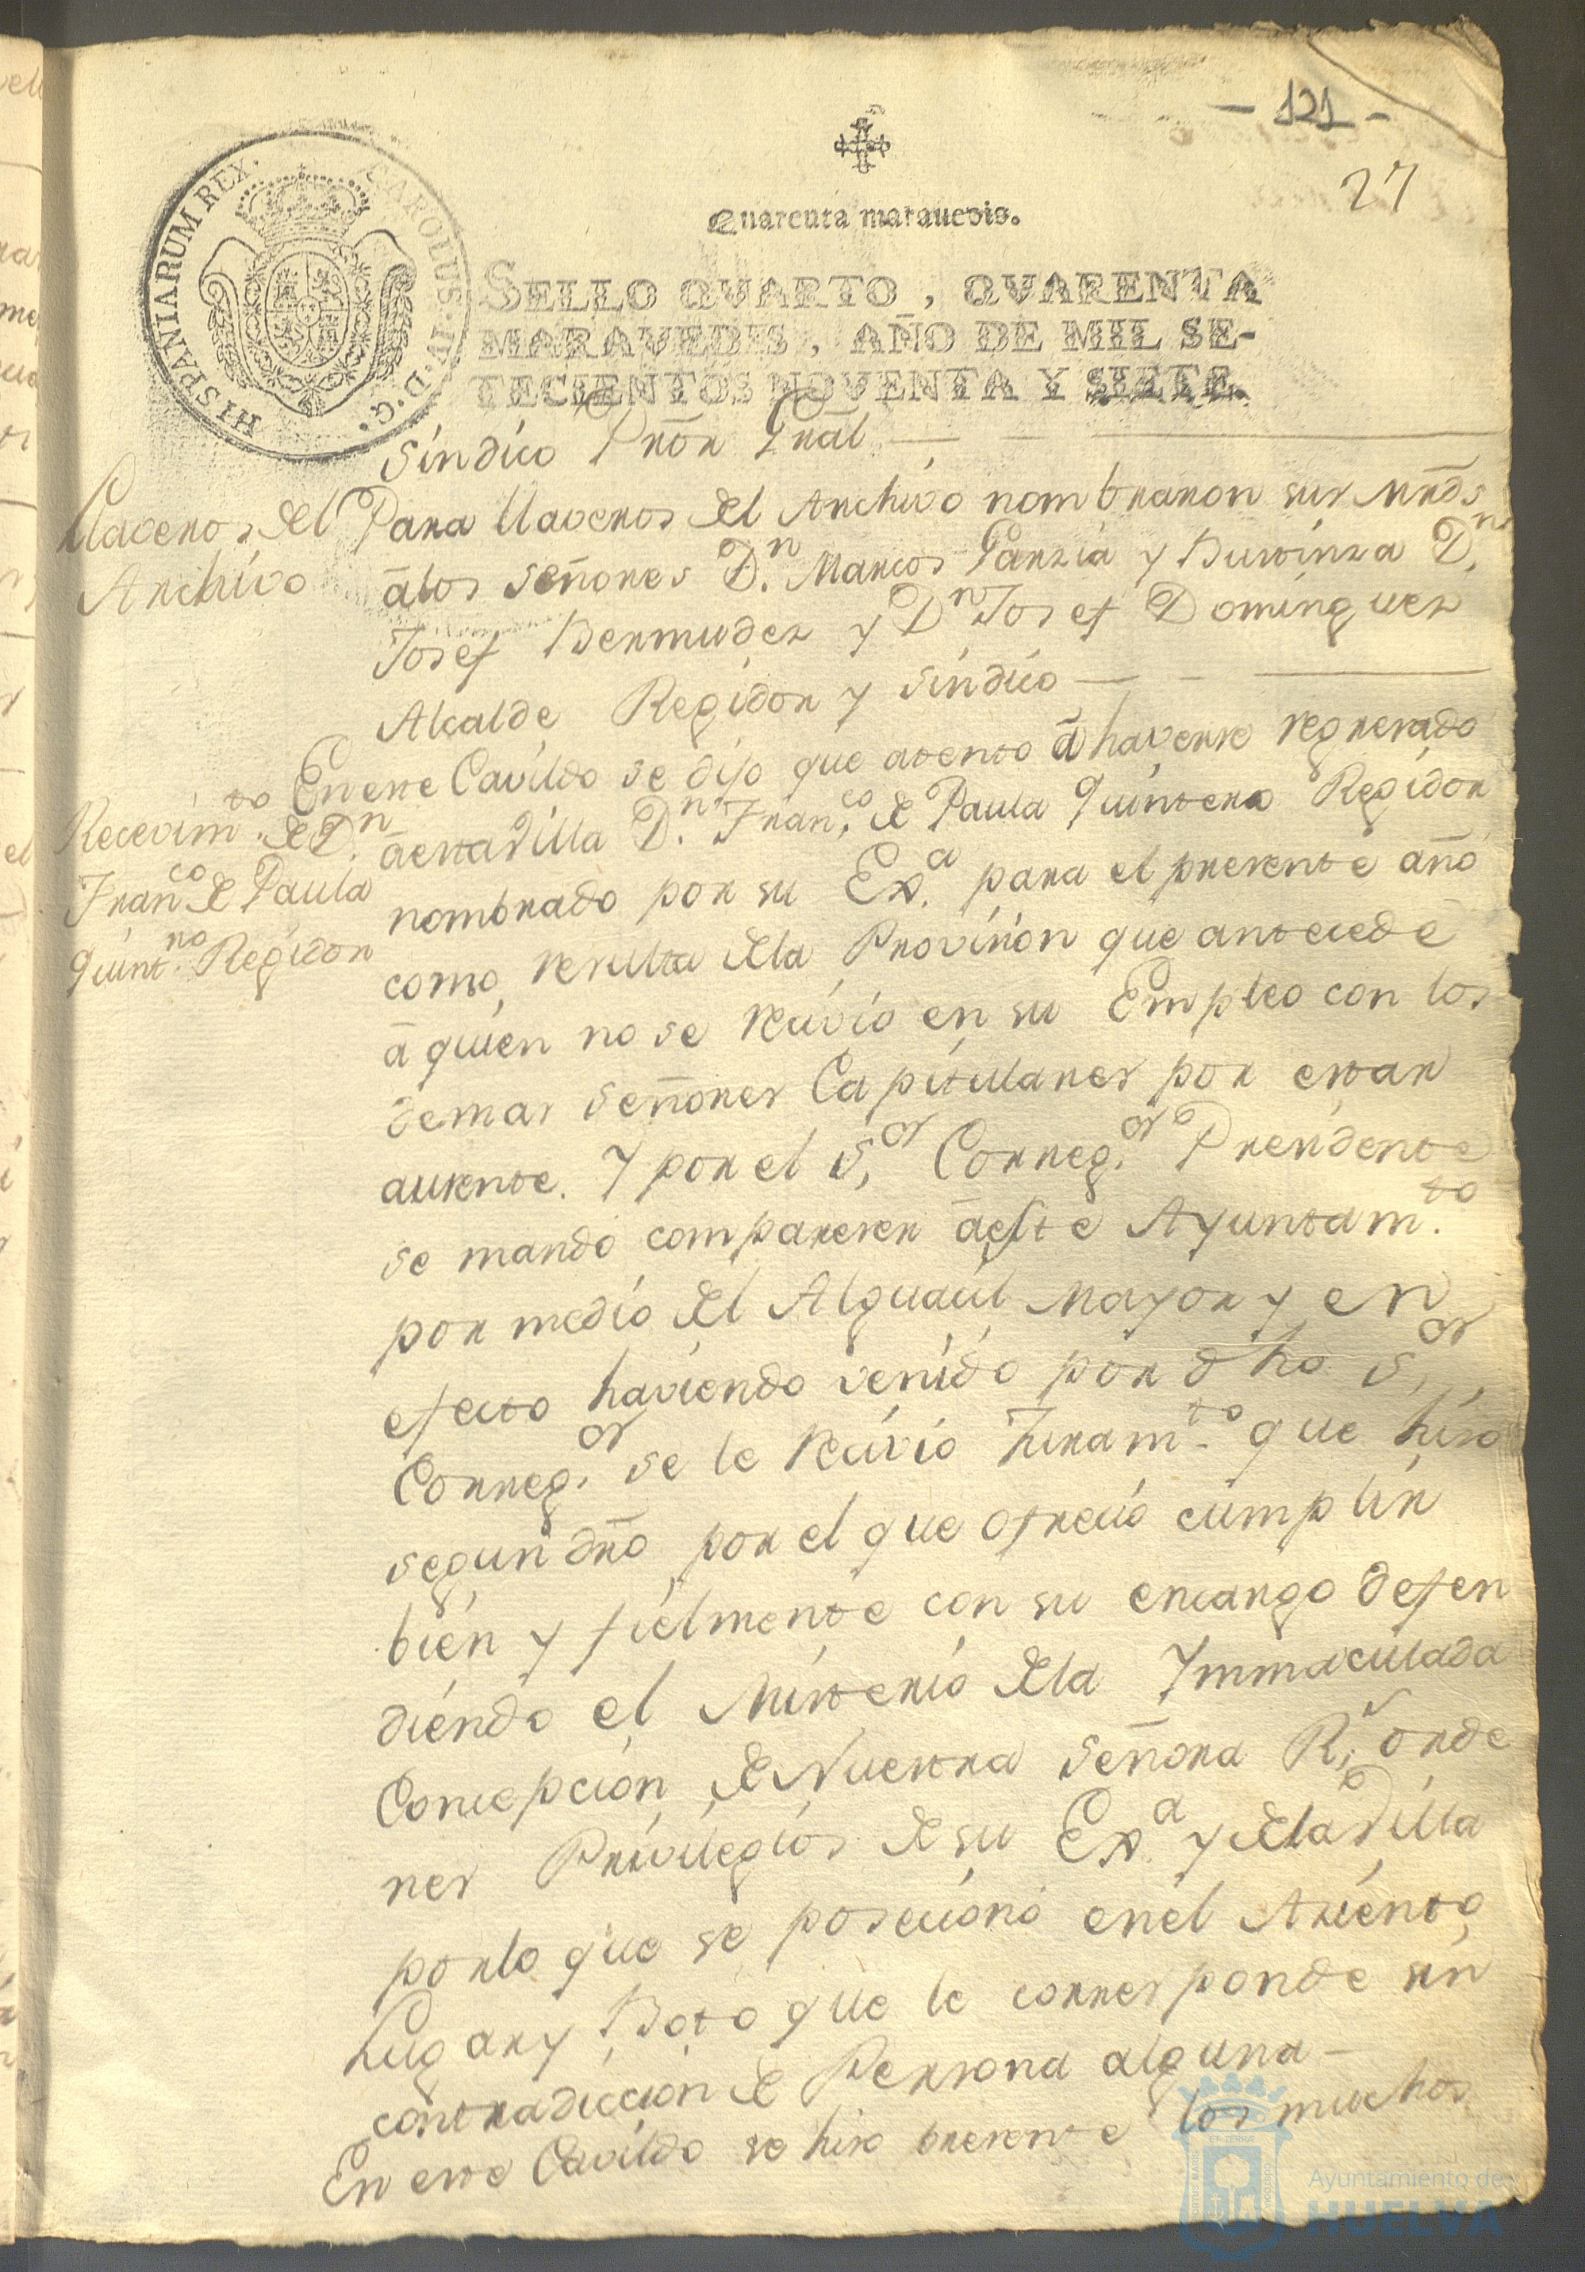 - 121 -
27
Quarenta marauedis.
HISPANIARUM REX. CAROLUS. IV. D. G.
SELLO QVARTO, QVARENTA
MARAVEDIS, AÑO DE MIL SE-
TECIENTOS NOVENTA Y SIETE.
Sindico Prõr Grãl
Llaveros del
Archivo
Para llaveros del Archivo nombraron sus mrds
â los señores D.n Marcos Garzia y D.n
Josef Bermudez y Dn Josef Dominguez
Alcalde Regidor y sindico
Recevim.to de D.n
Fran.co de Paula
Quint.no Regidor
En este Cavildo se dijo que atento â haverse regresado
â esta Villa D.n Fran.co de Paula Quintero Regidor
nombrado por su Ex.a para el presente año
como resulta de la Provision que antecede
â quien no se recivio en su Empleo con los
demas señores Capitulares por estar
ausente. Y por el S.or Correg.or Presidente
se mando compareser â este Ayuntam.to
por medio del Alguacil Mayor y en
efecto haviendo venido por dho S.or
Correg.or se le recivio Juram.to que hiso
segun dro por el que ofrecio cumplir
bien y fielmente con su encargo defen
diendo el Misterio de la Ymmaculada
Concepcion de Nuestra Señora R.s orde
nes Privilegios de su Ex.a y de la Villa
por lo que se posecionó en el Asiento
Lugar y Boto que le corresponde sin
contradiccion de Persona alguna -
En este Cavildo se hiso presente los muchos
Ayuntamiento de
HUELVA